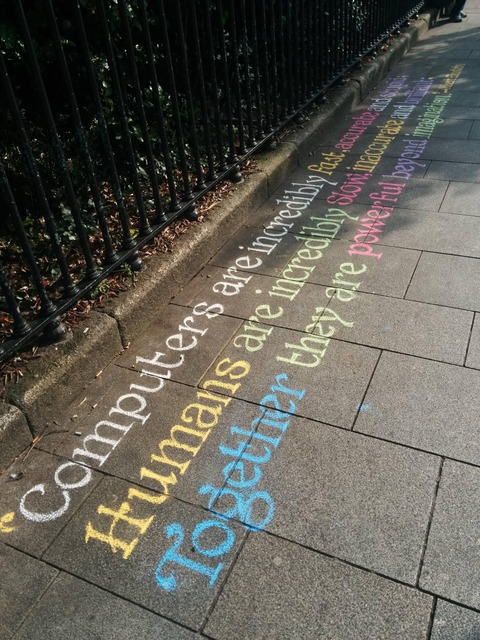 "Computers are incredibly fast, accurate and stupid.
Humans are incredibly Slow, inaccurate and brilliant.
Together they are powerful beyond imagination."